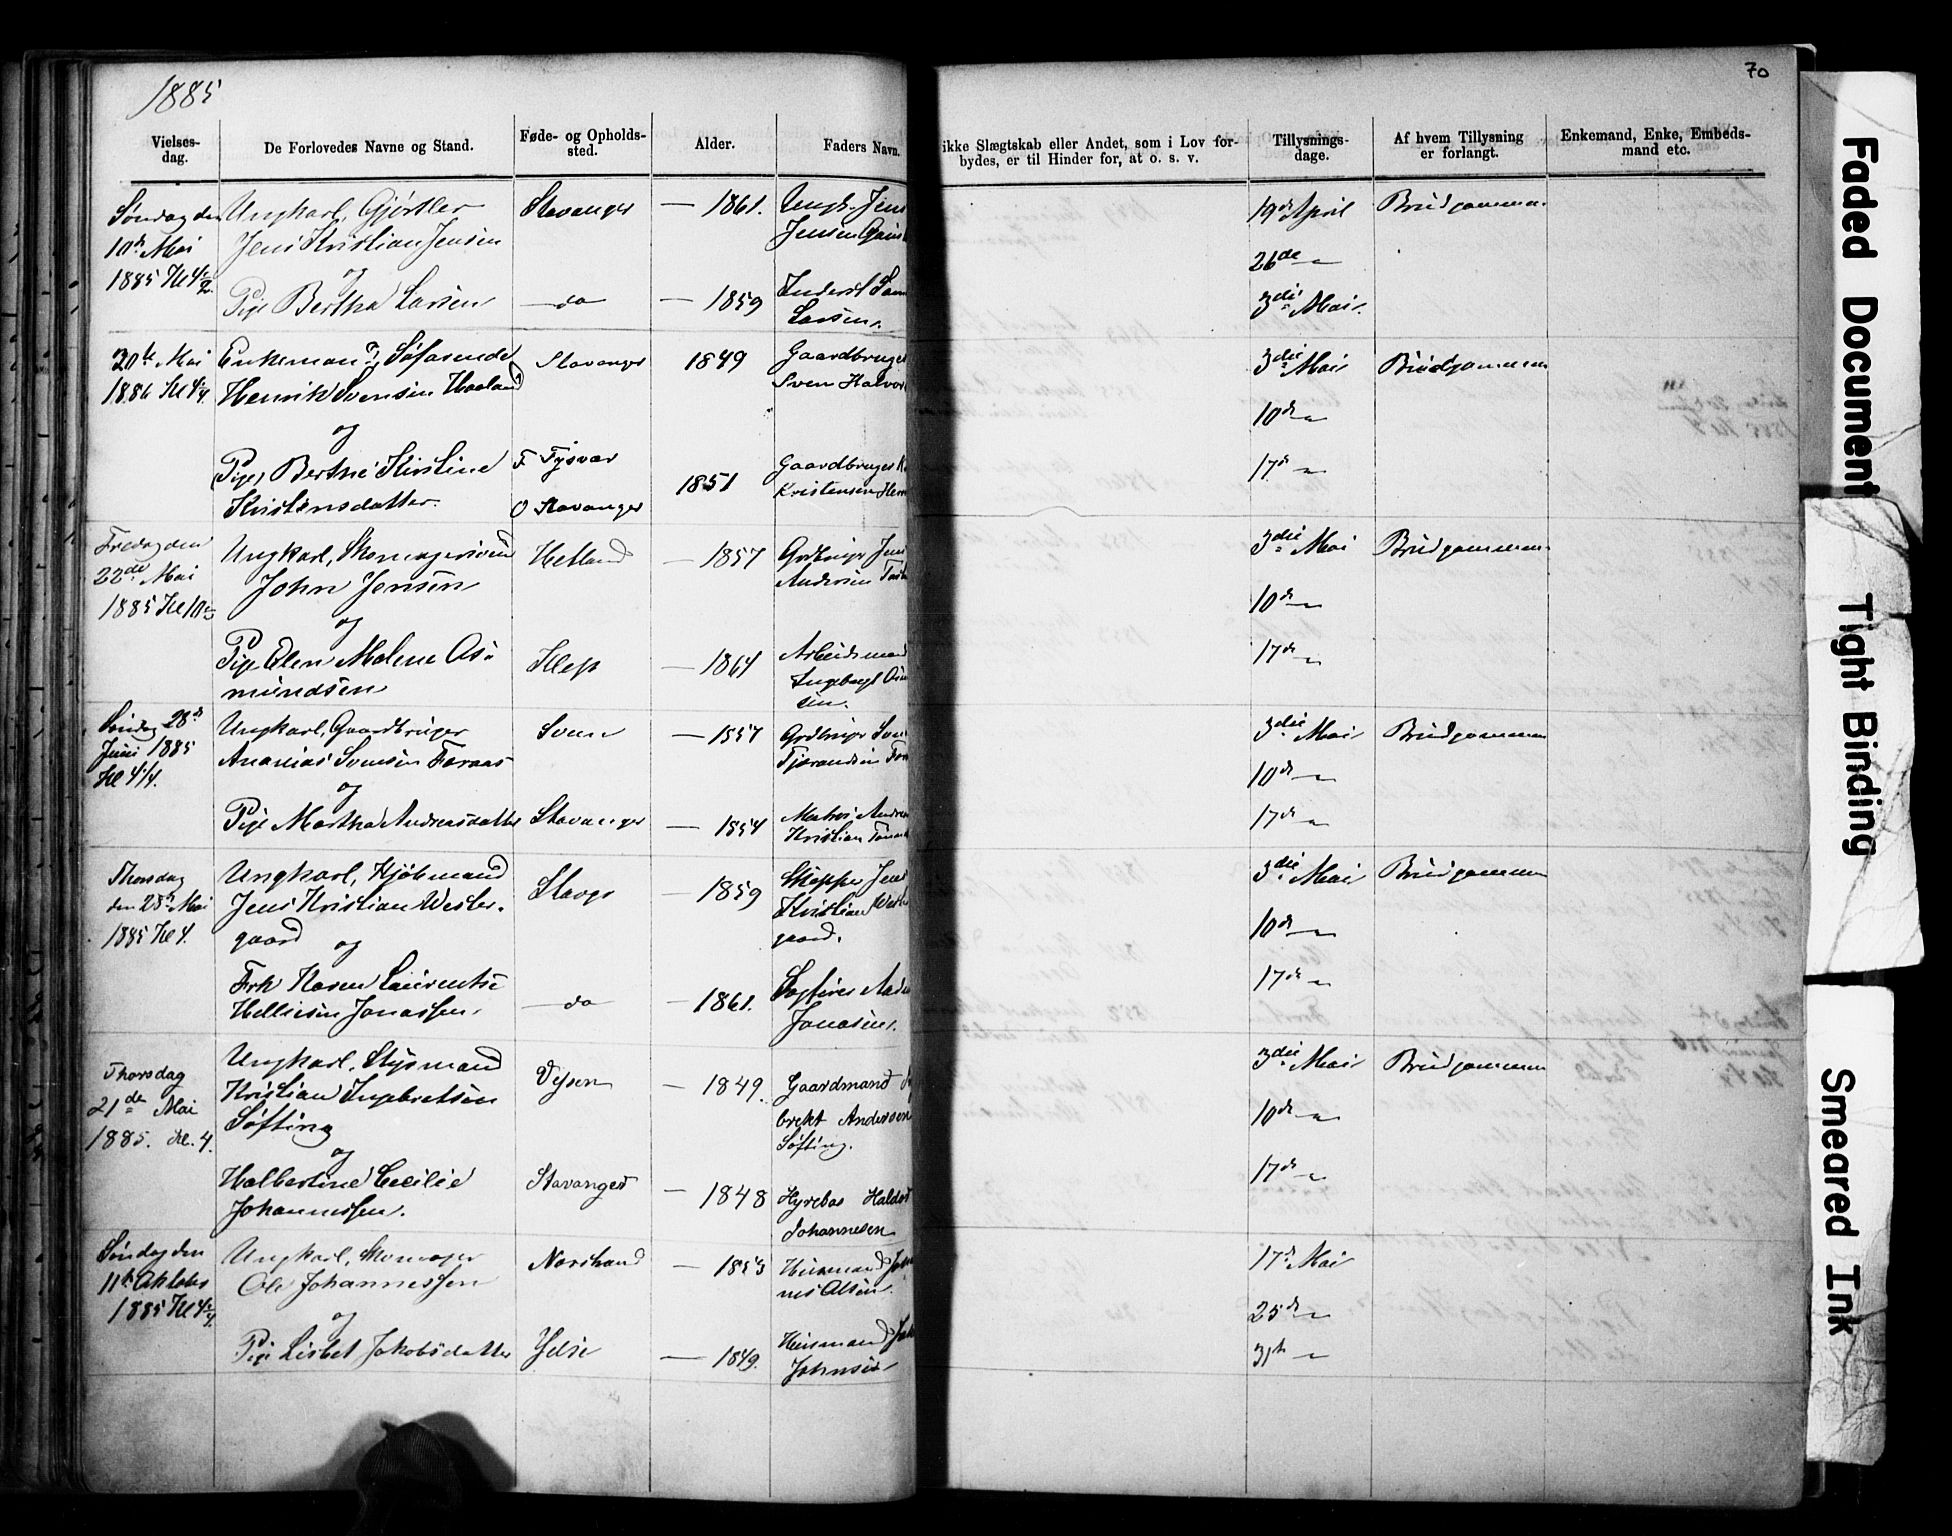 1885
70
Vielses-
dag.
De Forlovedes Navne og Stand.
Føde- og Opholds-
sted.
Alder.
Faders Navn.
ikke Slægtskab eller Andet, som i Lov for-
bydes, er til Hinder for, at o. s. v.
Tillysnings-
dage.
Af hvem Tillysning
er forlangt.
Enkemand, Enke, Embeds-
mand etc.
Søndag den
10de Mai
1885 Kl 4½
Ungkarl, Gjørtler
Jens Kristian Jensen
og
Pige Bertha Larsen
Stavanger
— do
— 1861.
— 1859
Jens
Jensen
Larsen.
19de April
26de — "
3die Mai.
Brudgommen
20de Mai
1886 Kl 4¼
Enkemand, Søfarende
Henrik Svensen Haaland
og
Pige, Berthe Kirstine
Kristensdatter.
Stavanger
F. Tysvær
O Stavanger
1849
1851
Gaardbruger
Sven Halvor
Gaardbruger K
Kristensen
3die Mai
10de — "
17de — "
Brudgommen
Fredag den
22de Mai
1885 Kl 10
Ungkarl, Skomagersvend
John Jensen
og
Pige Elen Malene As-
mundsen
Hetland
Klep
— 1857
— 1864
Grdbruger Jens
Andersen
Arbeidsmand
Ingebregt
sen.
3die Mai
10de — "
17de — "
Brudgommen
Søndag 28de
Juni 1885
Kl 4¼.
Ungkarl, Gaardbruger
Ananias Svensen Foraas
og
Pige Martha Andreasdatter
Stavanger
— 1857
— 1854
Grdbruger Sven
Andrea
Kristian
3die Mai
10de — "
17de — "
Brudgommen
Thorsdag
den 28de Mai
1885 Kl 4.
Ungkarl, Kjøbmand
Jens Kristian Wester-
gaard
og
Frk Karen Laurentse
Helliesen Janassen.
Stavgr
— do
— 1859
— 1861.
Skipper Jens
Kristian West
gaard.
Janasen.
3die Mai
10de — "
17de — "
Brudgommen
Thorsdag
21de Mai
1885. Kl. 4.
Ungkarl, Styrmand
Kristian Ingebretsen
Søfting
og
Halbertine Cecilie
Johannessen.
Stavanger
— 1849.
— 1848
Gaardmand
brekt Andersen
Søfting.
Johannesen
3die Mai
10de — "
17de — "
Brudgommen
Søndag den
11te Oktober
1885 Kl 4¼
Ungkarl, Skomager
Ole Johannessen
og
Pige Lisbet Jakobsdatter
Norstrand
— 1853
— 1849.
Husmand Joha
nes Olsen.
Husmand
Johnsen
17de Mai
25de — "
31te — "
Faded Document
Tight Binding
Smeared Ink